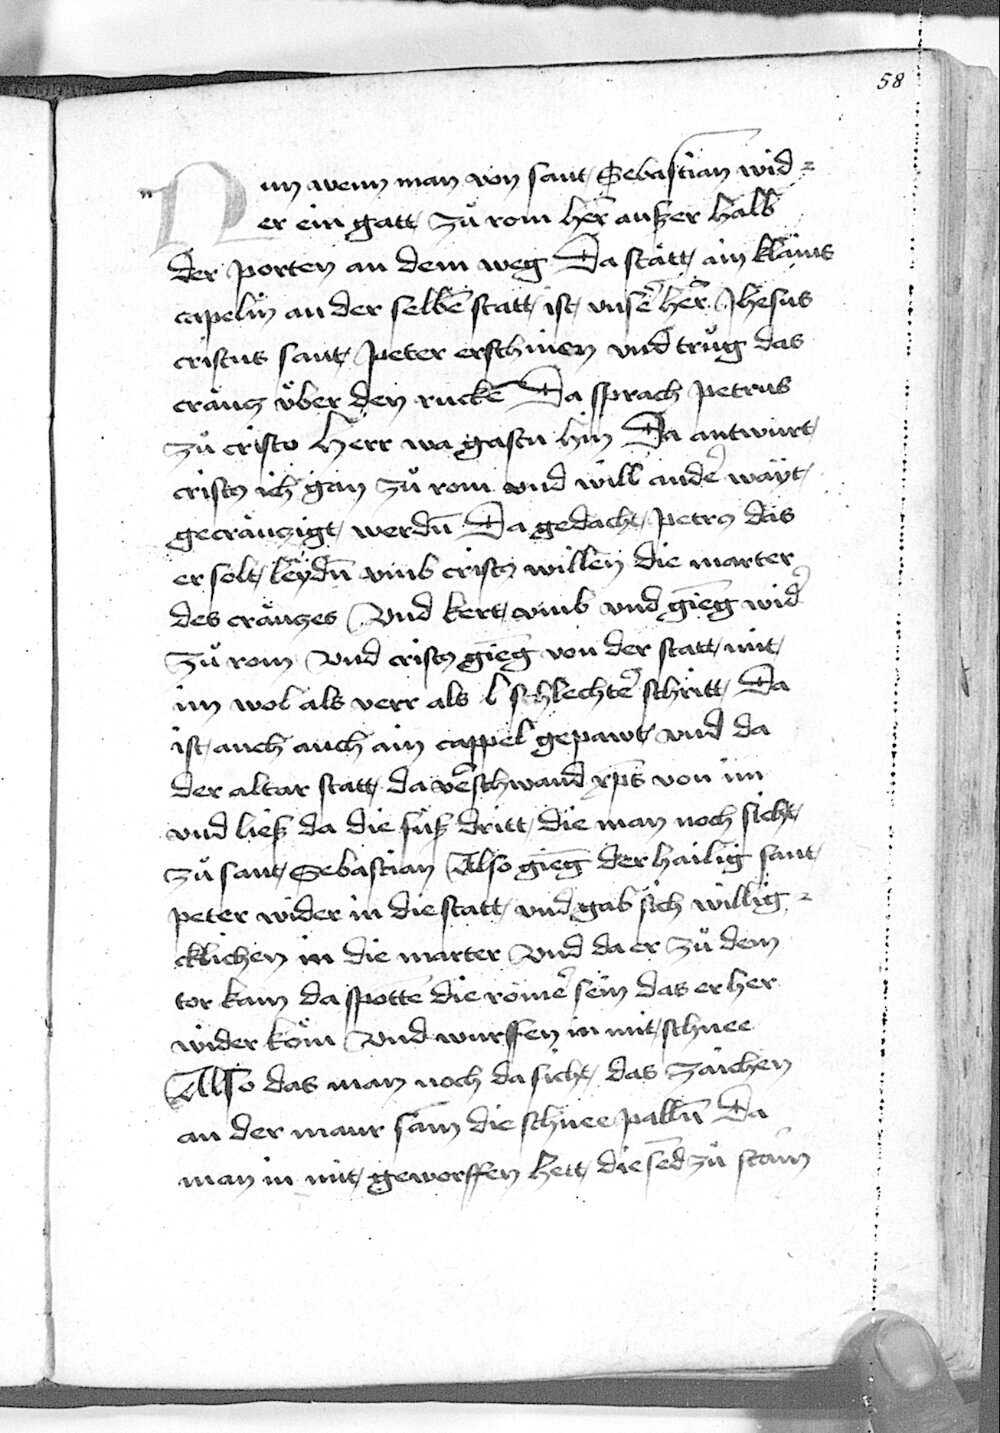 58
Nun wenn man von sant Sebastian wid=
er ein gatt zů rom her̄ ausßer halb
der porten an dem weg Da stätt ain kläins
capelin an der selbē statt ist vnser̄ her̄ Jhesus
cristus sant peter erschinen vnd trůg das
cräucz v̈ber den ruckē Da sprach petrus
zů cristo Herr wa gastu hin Da antwurt
cristꝯ ich gan zů rom vnd will ander̄ wäyt
gecräuczigt werdn̄ Da gedacht petrꝯ das
er solt leydn̄ vmb cristꝯ willen die marter
des cräuczes Vnd kert vmb vnd gieng wider̄
zů rom Vnd cristꝯ gieng von der statt mit
im wol als verr als l schlechter̄ schritt Da
ist auch auch ain cappel gepawt vnd da
der altar statt da ver̄schwand xp̄s von im
vnd ließ da die füß dritt die man noch sicht
zů sant Sebastian Also gieng der hailig sant
peter wider in die statt vnd gab sich willig=
cklichen in die marter Vnd da er zů dem
tor kam da spottē die römer̄ sein das er her
wider köm Vnd wurffen in mit schnee
Also das man noch da sicht das zaichen
an der maur sam die schnee palln̄ Da
man in mit geworffen hett die send zů stain